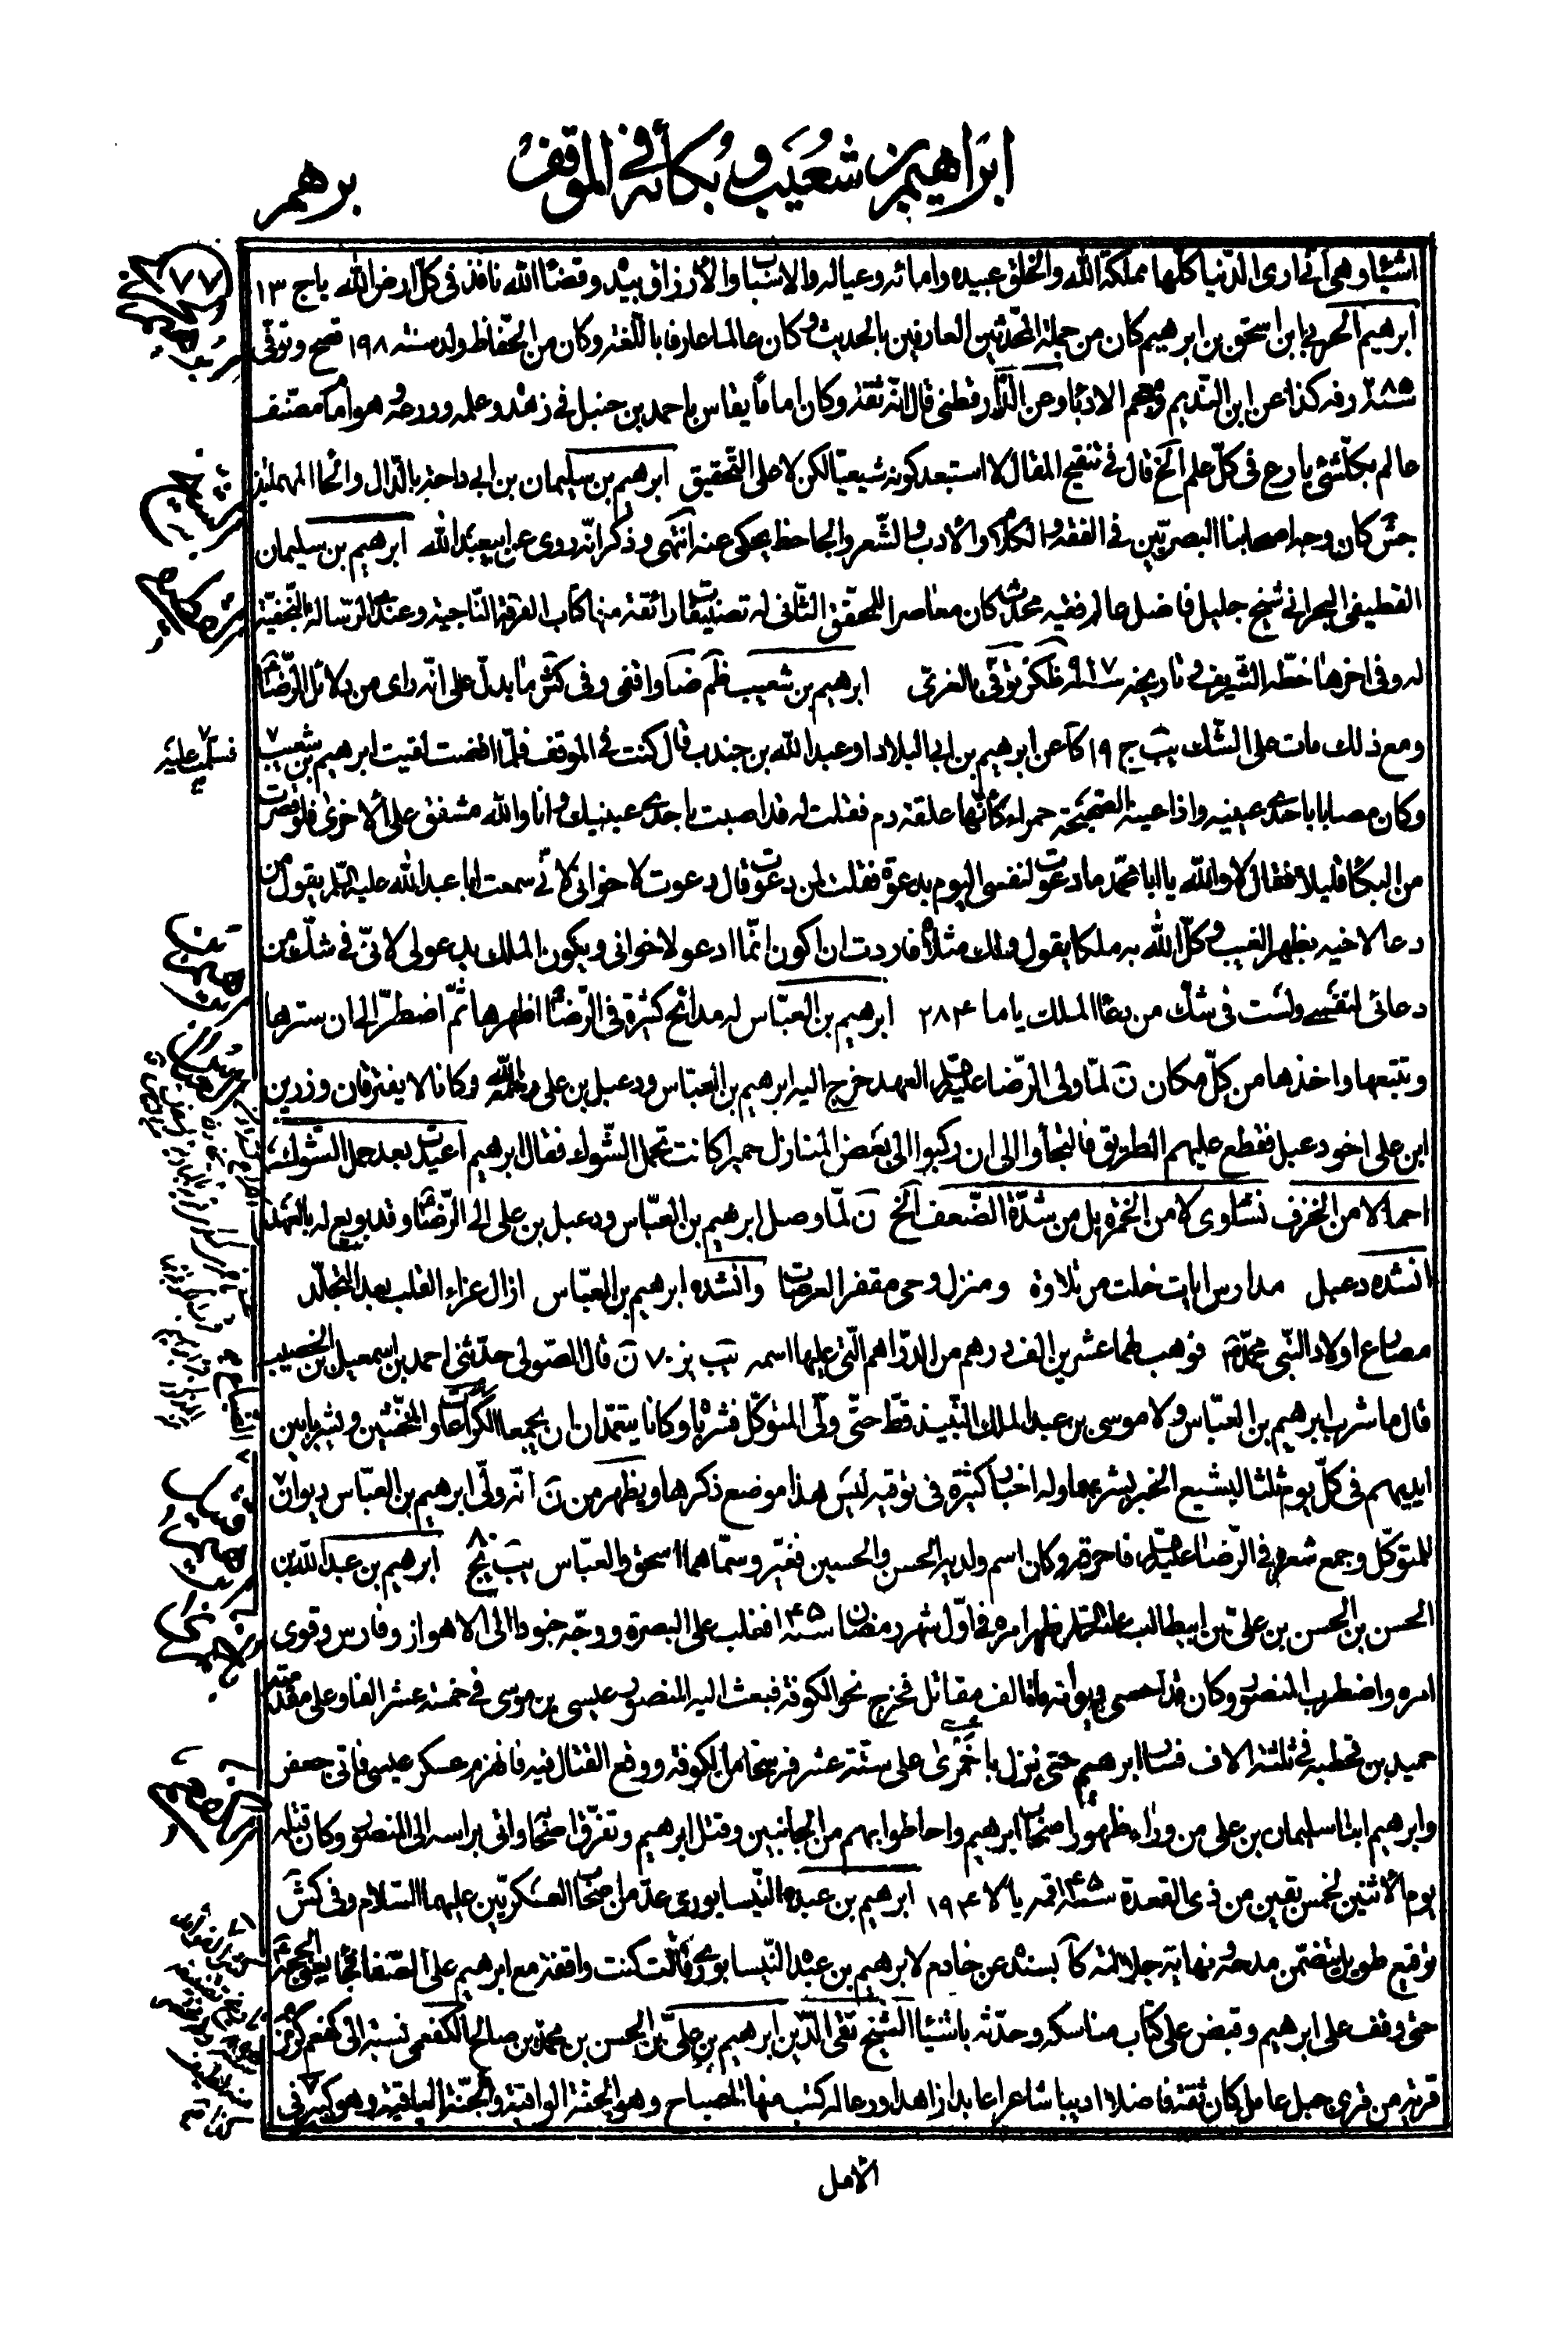 ابراهيم بن شعيب وبكائه في الموقف
برهم
٧٧
اشياء وهي اني ارى الدنيا كلها مملكة الله والخلق عبيده وامائه وعياله والاسباب والأرزاق بيده وقضاء الله نافذ في كل ارض الله يا ج ١٣
ابرهيم الحربي ابن اسحق بن ابرهيم كان من جملة المحدثين العارفين بالحديث وكان عالما عارفا باللغة وكان من الحفاظ ولد سنة ١٩٨ قصح وتوفى
سنة ٢٨٥ رفه كذا عن ابن النديم ومعجم الادباء وعن الدارقطني قال انه ثقة وكان اماما يقاس باحمد بن حنبل في زهده وعلمه وورعه وهو امام مصنف
عالم بكل شئ بارع في كل علم الخ قال في تنقيح المقال لا استبعد كونه شيعيا لكن لا على التحقيق ابرهيم بن سليمان بن ابي داحة بالدال والحاء المهملتين
جش كان وجه اصحابنا البصريين في الفقه والكلام والأدب والشعر والجاحظ يحكى عنه انتهى وذكر انه روى عن ابيعبد الله ابرهيم بن سليمان
القطيفي البحراني شيخ جليل فاضل عالم فقيه محدث كان معاصرا للمحقق الثاني له تصنيفات رائقة منها كتاب الفرقة الناجية وعندنا الرسالة النجفية
له وفي اخرها خطه الشريف وتاريخه سنة ٩٢٧ ظكز توفى بالغرى ابرهيم بن شعيب ظم ضا واقفى وفي كش ما يدل على انه راى من دلائل الرضا
ومع ذلك مات على الشك يب ج ١٩ كا عن ابرهيم بن ابي البلاد او عبد الله بن جندب قال كنت في الموقف فلما افضت لقيت ابرهيم بن شعيب
فسلمت عليه
وكان مصابا باحدى عينيه واذا عينه الصحيحة حمراء كأنها علقة دم فقلت له قد اصبت باحدى عينيك وانا والله مشفق على الأخرى فلو قصرت
من البكاء قليلا فقال لا والله يا ابا محمد ما دعوت لنفسى اليوم بدعوة فقلت لمن دعوت قال دعوت لاخواني لأني سمعت ابا عبد الله عليه السلم يقول من
دعا لاخيه بظهر الغيب وكل الله به ملكا يقول ولك مثلاه فاردت ان اكون انما ادعو لاخواني ويكون الملك يدعو لي لاني في شك من
دعائي لنفسي ولست في شك من دعاء الملك يا ما ٢٨٤ ابرهيم بن العباس له مدائح كثيرة في الرضا اظهرها ثم اضطر الى ان سترها
وتتبعها واخذها من كل مكان ن لما ولى الرضا عليه السلم العهد خرج اليه ابرهيم بن العباس ودعبل بن على وكانا لا يفترقان ورزين
ابن على اخو دعبل فقطع عليهم الطريق فالتجأوا الى ان ركبوا الى بعض المنازل حميرا كانت تحمل الشوك فقال ابرهيم اعيدت بعد حمل الشوك
احمالا من الخزف نشاوى لا من الخمرة بل من شدة الضعف الخ ن لما وصل ابرهيم بن العباس ودعبل بن على الى الرضا وقد بويع له بالعهد
انشده دعبل مدارس ايات خلت من تلاوة ومنزل وحى مقفر العرصات وانشده ابرهيم بن العباس ازال عزاء القلب بعد التجلد
مصارع اولاد النبي محمد فوهب لهما عشرين الف درهم من الدراهم التي عليها اسمه يب يز ٧٠ ن قال الصولى حدثني احمد بن اسمعيل بن الخصيب
قال ما شرب ابرهيم بن العباس ولا موسى بن عبد الملك النبيذ قط حتى ولى المتوكل فشرباه وكانا يتعمدان ان يجمعا الكراعات والمخنثين ويشربا بين
ايديهم في كل يوم ثلثا ليشيع الخبر بشربهما وله اخبار كثيرة في توقيه ليس هذا موضع ذكرها ويظهر من ن انه ولى ابرهيم بن العباس ديوان
للمتوكل وجمع شعره في الرضا عليه السلم فاحرقه وكان اسم ولديه الحسن والحسين فغير وسماهما اسحق والعباس يب يح ٨٠ ابرهيم بن عبد الله بن
الحسن بن الحسن بن على بن ابيطالب عليه السلم ظهر امره في اول شهر رمضان سنة ١٤٥ فغلب على البصرة ووجه جنودا الى الاهواز وفارس وقوى
امره واضطرب المنصور وكان قد احصى ديوانه مائة الف مقاتل فخرج نحو الكوفة فبعث اليه المنصور عيسى بن موسى في خمسة عشر الفا وعلى مقدمته
حميد بن قحطبة في ثلثة الاف فسار ابرهيم حتى نزل باخمرى على ستة عشر فرسخا من الكوفة ووقع القتال فيه فانهزم عسكر عيسى فاتى جعفر
وابرهيم ابنا سليمان بن على من وراء ظهور اصحاب ابرهيم واحاطوا بهم من الجانبين وقتل ابرهيم وتفرق اصحابه واتى براسه الى المنصور وكان قتله
يوم الأثنين لخمس بقين من ذي القعدة سنة ١٤٥ قمه يا لا ١٩٤ ابرهيم بن عبده النيسابوري عد من اصحاب العسكريين عليهما السلام وفي كش
توقيع طويل يتضمن مدحه ونهاية جلالته كا بسنده عن خادم لابرهيم بن عبده النيسابوري قالت كنت واقفة مع ابرهيم على الصفا فجاء الحجة
حتى وقف على ابرهيم وقبض على كتاب مناسكه وحدثه باشياء الشيخ تقي الدين ابرهيم بن علي بن الحسن بن محمد بن صالح الكفعمي نسبة الى كفعم كزمزم
قرية من قرى جبل عامل كان ثقة فاضلا اديبا شاعرا عابدا زاهدا ورعا له كتب منها المصباح وهو الجنة الواقية والجنة الباقية وهو كبير في
الامل